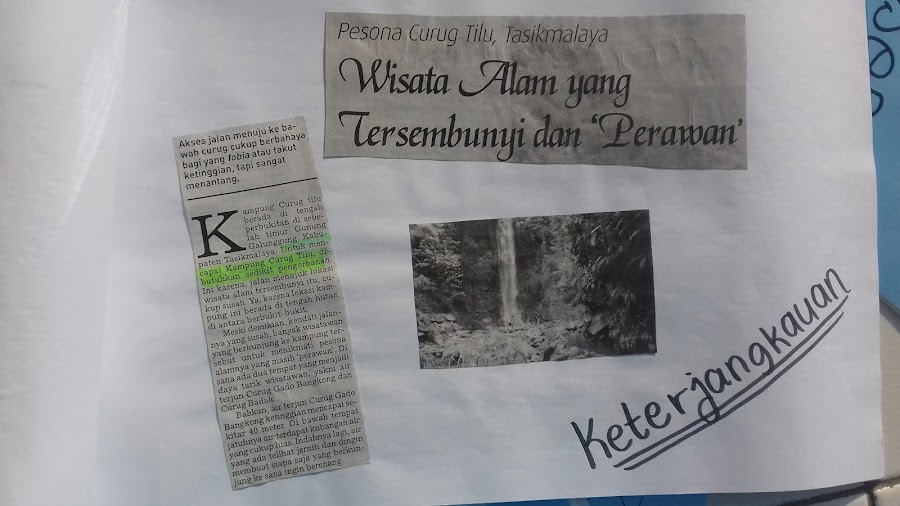 Pesona Curug Tilu, Tasikmalaya
Wisata Alam yang
Tersembunyi dan 'Perawan'
Akses jalan menuju ke ba-
wah curug cukup berbahaya
bagi yang fobia atau takut
ketinggian, tapi sangat
menantang.
Kampung Curug tilu
berada di tengah
perbukitan di sebe-
lah timur Gunung
Galunggung Kabu-
paten Tasikmalaya. Untuk men-
capai Kampung Curug Tilu, di-
butuhkan sedikit pengorbanan.
Ini karena, jalan menujuk lokasi
wisata alam tersembunyi itu, cu-
kup susah. Ya, karena lokasi kam-
pung ini berada di tengah hutan
di antara berbukit-bukit.
Meski demikian, kendati jalan-
nya yang susah, banyak wisatawan
yang berkunjung ke kampung ter-
sebut untuk menikmati pesona
alamnya yang masih 'perawan'. Di
sana ada dua tempat yang menjadi
daya tarik wisatawan, yakni air
terjun Curug Gado Bangkong dan
Curug Badak.
Bahkan, air terjun Curug Gado
Bangkong ketinggian mencapai se-
kitar 40 meter. Di bawah tempat
jatuhnya air terdapat kubangan air
yang cukup luas. Indahnya lagi, air
yang ada telihat jernih dan dingin
membuat siapa saja yang berkun-
jung ke sana ingin berenang.
Keterjangkauan